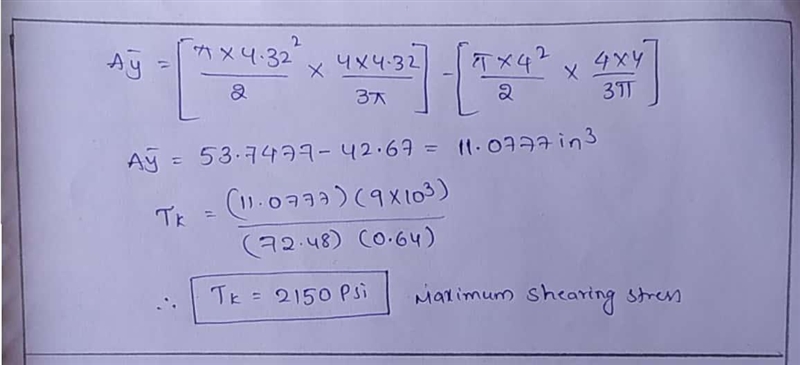 Aȳ = [π×4.32²/2 × 4×4.32/3π] - [π×4²/2 × 4×4/3π]
Aȳ = 53.7477 - 42.67 = 11.0777 in³
τₖ = (11.0777)(9×10³)/(72.48)(0.64)
∴ τₖ = 2150 Psi Maximum shearing stress